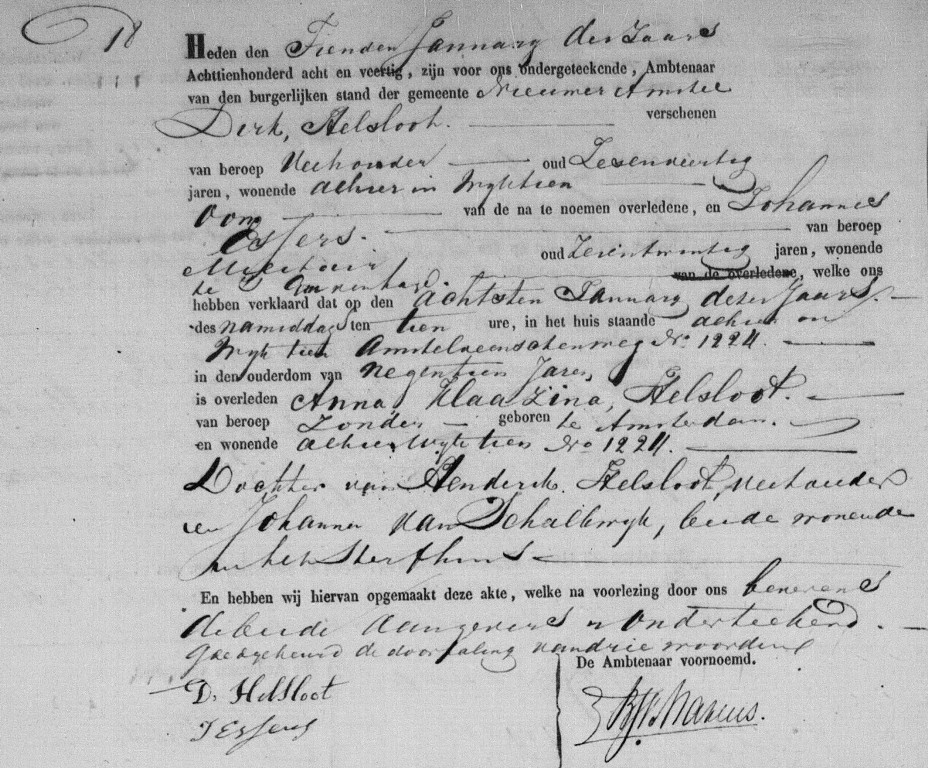 18
Heden den Tienden Januarij des Jaars
Achttienhonderd acht en veertig, zijn voor ons ondergeteekende, Ambtenaar
van den burgerlijken stand der gemeente Nieuwer Amstel
verschenen
Dirk, Helsloot.
van beroep Veehouder oud Zesenviertig
jaren, wonende alhier in Wyk tien
Oom van de na te noemen overledene, en Johannes
Essers. van beroep
oud Zevientwintig jaren, wonende
te van de overledene, welke ons
hebben verklaard dat op den achtsten Januarij dezer Jaars.
des namiddags ten tien ure, in het huis staande alhier in
Wyk tien Amstelveenschenweg No. 1224.
in den ouderdom van negentien Jaren
is overleden Anna, Klaazina, Helsloot.
van beroep Zonder geboren te Amsterdam.
en wonende alhier Wyk tien No 1224.
Dochter van Henderik Helsloot, veehouder
en Johanna van Schalkwyk, beide wonende
in het Sterfhuis
En hebben wij hiervan opgemaakt deze akte, welke na voorlezing door ons benevens
de beide aangevers is onderteekend.
Goedgekeurd de doorhaling van drie woorden
De Ambtenaar voornoemd.
D. Helsloot
J Essers